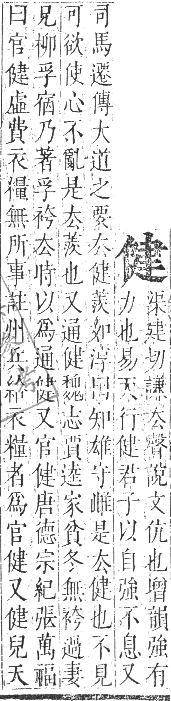 健
渠建切謙去聲說文伉也增韻強有
力也易天行健君子以自強不息又
司馬遷傳大道之要去健羨如淳曰知雄守雌是去健也不見
可欲使心不亂是去羨也又通健魏志賈逵家貧冬無袴過妻
兄柳孚宿乃著孚袴去時以爲通健又官健唐德宗紀張萬福
曰官健虛費衣糧無所事註州兵給衣糧者爲官健又健兒天